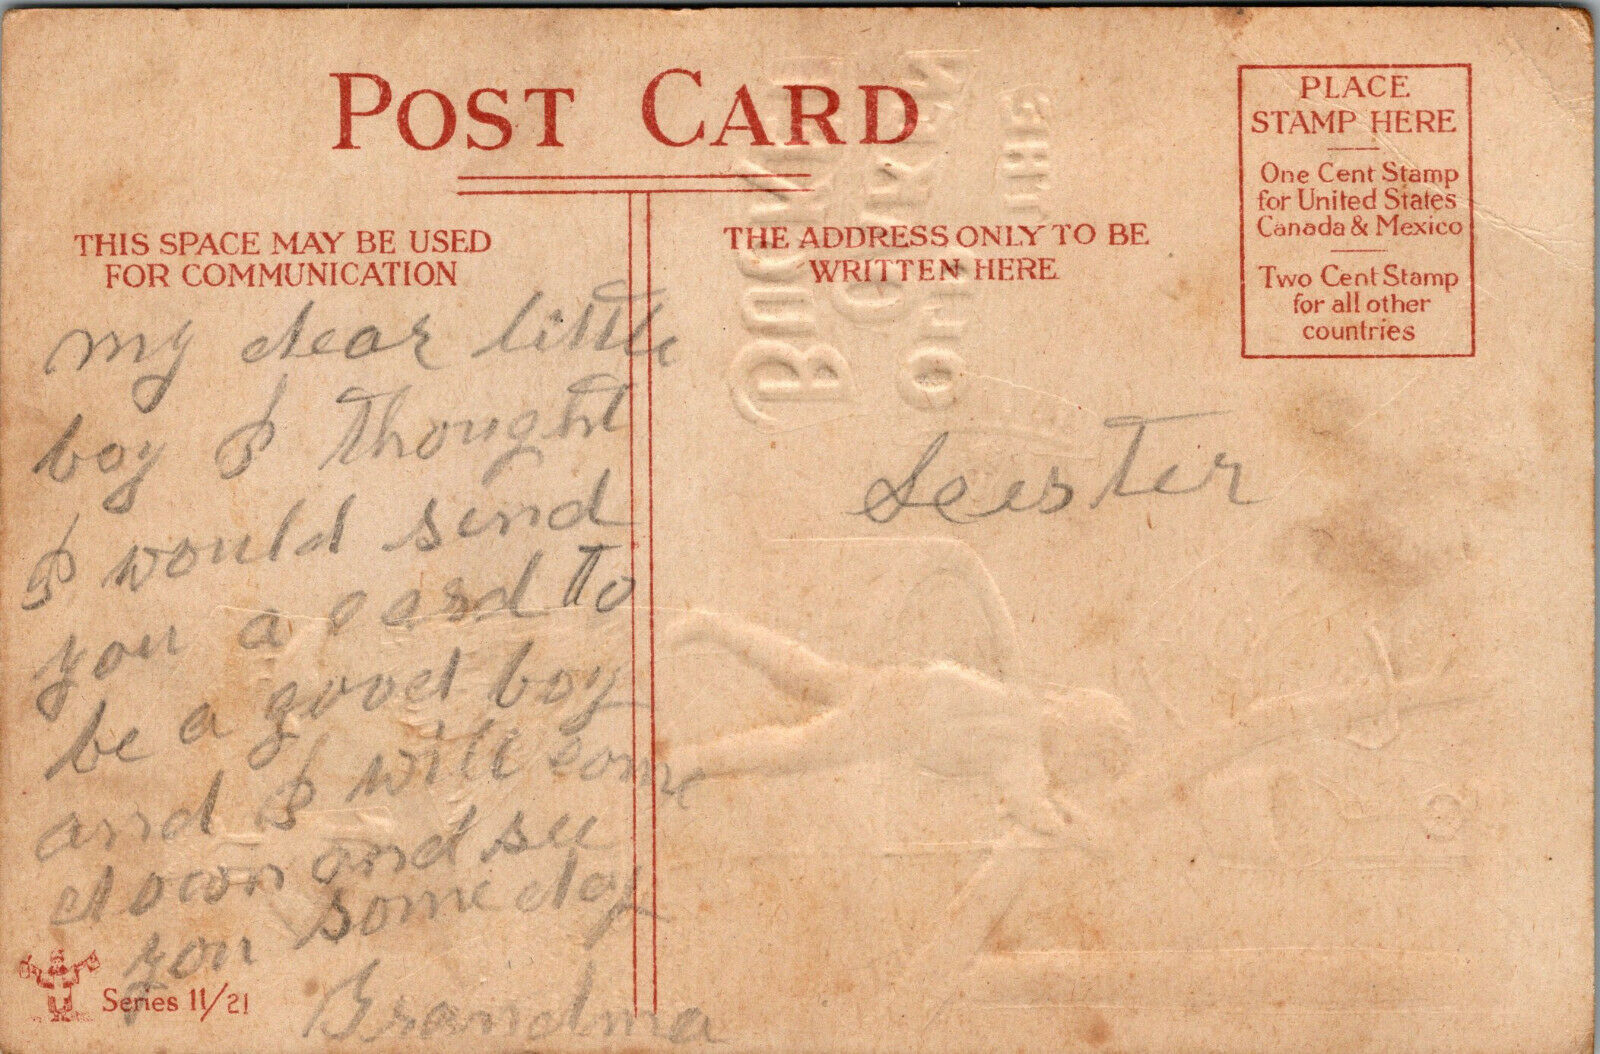 POST CARD
PLACE
STAMP HERE
One Cent Stamp
for United States
Canada & Mexico
Two Cent Stamp
for all other
countries
THIS SPACE MAY BE USED
FOR COMMUNICATION
THE ADDRESS ONLY TO BE
WRITTEN HERE
my dear little
boy I thought
I would send
you a card to
be a good boy
and I will come
down and see
you some day
Grandma
Leester
Series 11/21